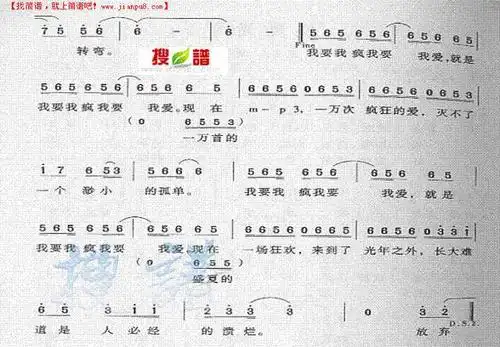 【找简谱,就上简谱吧!www.jianpu8.com】
7 5 5 6 6 - 6 - 5 6 5 6 5 6 5 6
Fine
转 弯。 我要我疯我要 我爱,就是
搜 譜
5 6 5 6 5 6 5 6 6 5 6 5 6 0 6 5 3 5 6 5 6 5 6 0 6 5 3
我要我疯我要 我爱,现在 m-p3,一万次 疯狂的爱,灭不了
(0 6 5 5 3)
一万首的
i 7 6 5 3 5 6 4 6 6 5 6 5 6 5 6 5 6 5 6
一个 渺小 的孤单。 我要我 疯我要 我爱,就是
5 6 5 6 5 6 5 6 6 5 6 5 6 0 6 5 3 5 6 5 6 0 3 3 1
我要我疯我要 我爱,现在 一场狂欢,来到了 光年之外,长大难
(0 6 5 5)
盛夏的
搜譜
6 5 3 1 2 2 3 3 3 - 0 3 2
道是 人必经 的溃烂。 放弃
D.S.2.